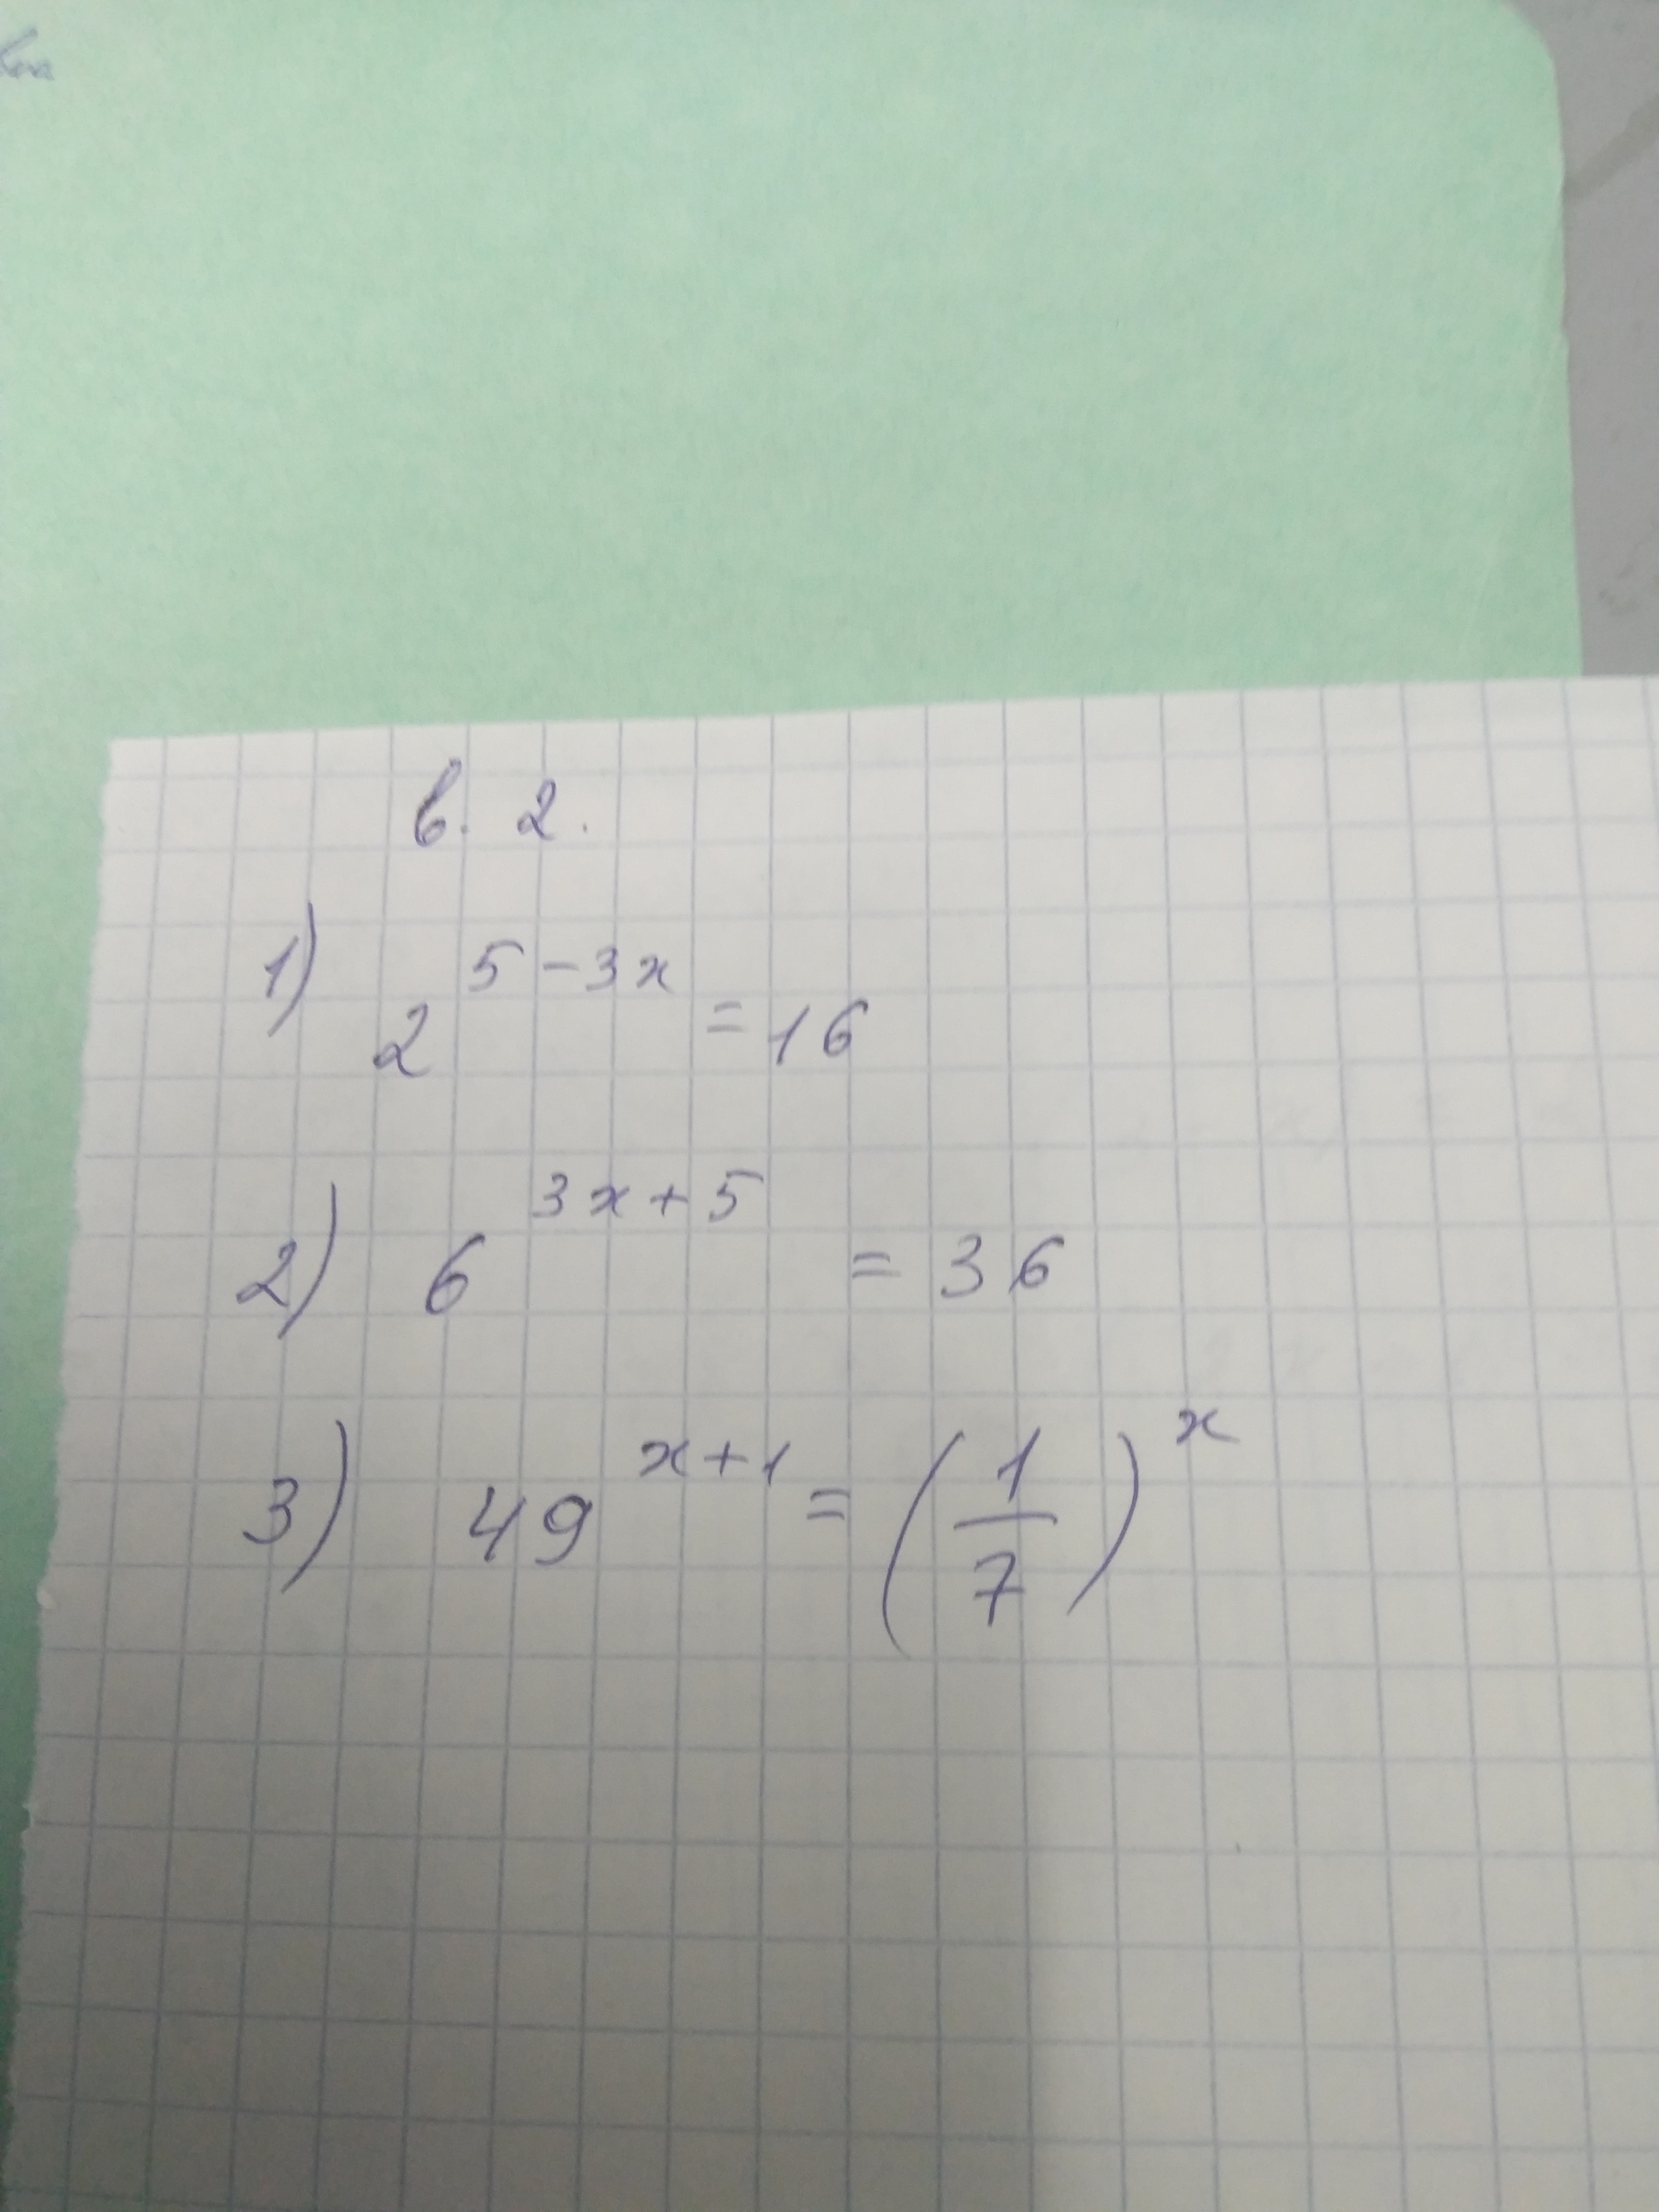 в. 2.
1) 2^{5-3x} = 16
2) 6^{3x+5} = 36
3) 49^{x+1} = (1/7)^x